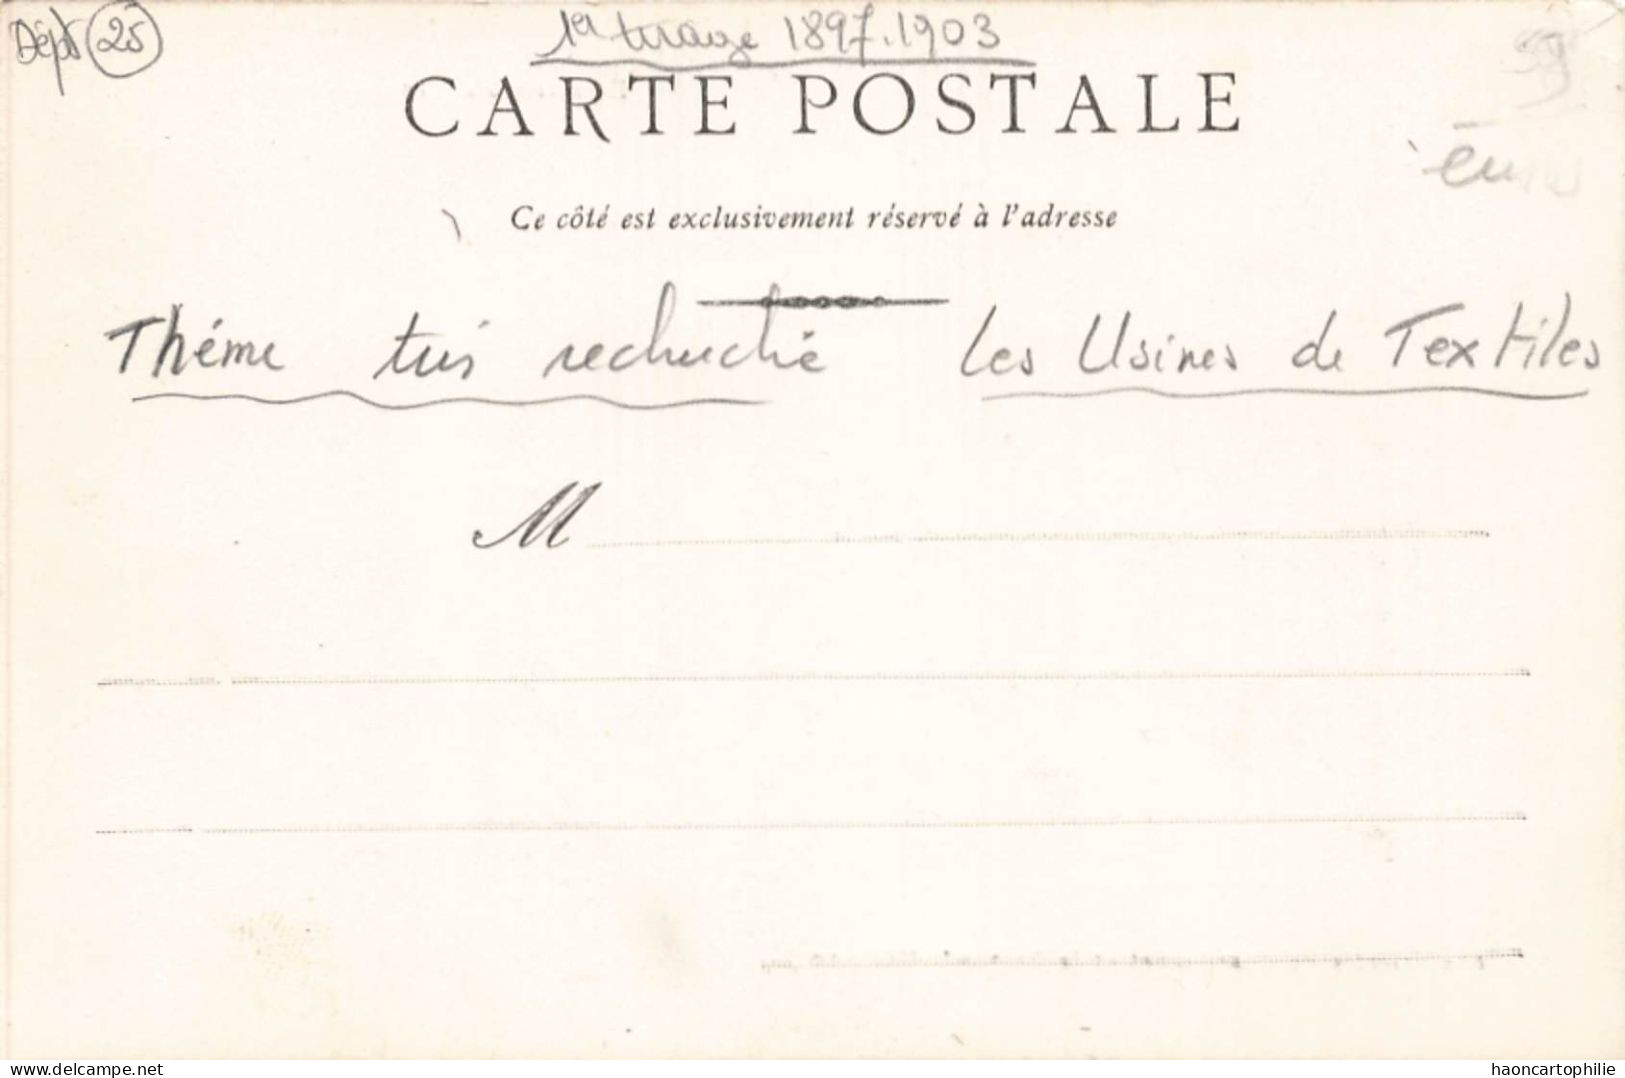 Dépt 25
1er tirage 1897.1903
59
euros
CARTE POSTALE
Ce côté est exclusivement réservé à l'adresse
Théme trés recherchée Les Usines de Textiles
M
delcampe.net
haoncartophilie